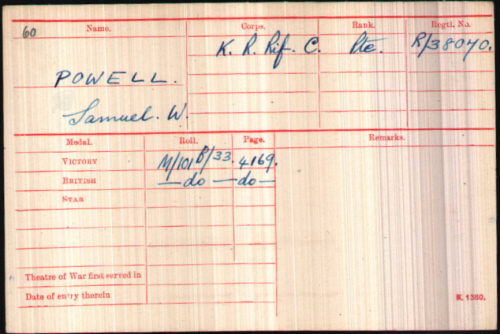 60 Name. Corps. Rank. Regtl. No.
K. R. Rif. C. Pte. R/38040.
POWELL.
Samuel. W.
Medal. Roll. Page. Remarks.
VICTORY M/101 B/33. 4169.
BRITISH —do —do—
STAR
Theatre of War first served in
Date of entry therein K. 1380.